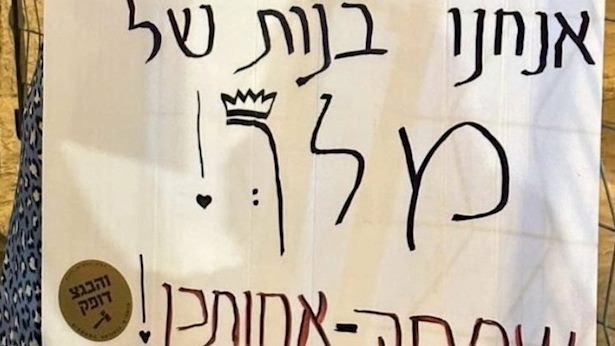 אנחנו בנות של
מלךְ!
שמחה-אחותכן!
והבגצ
דופק